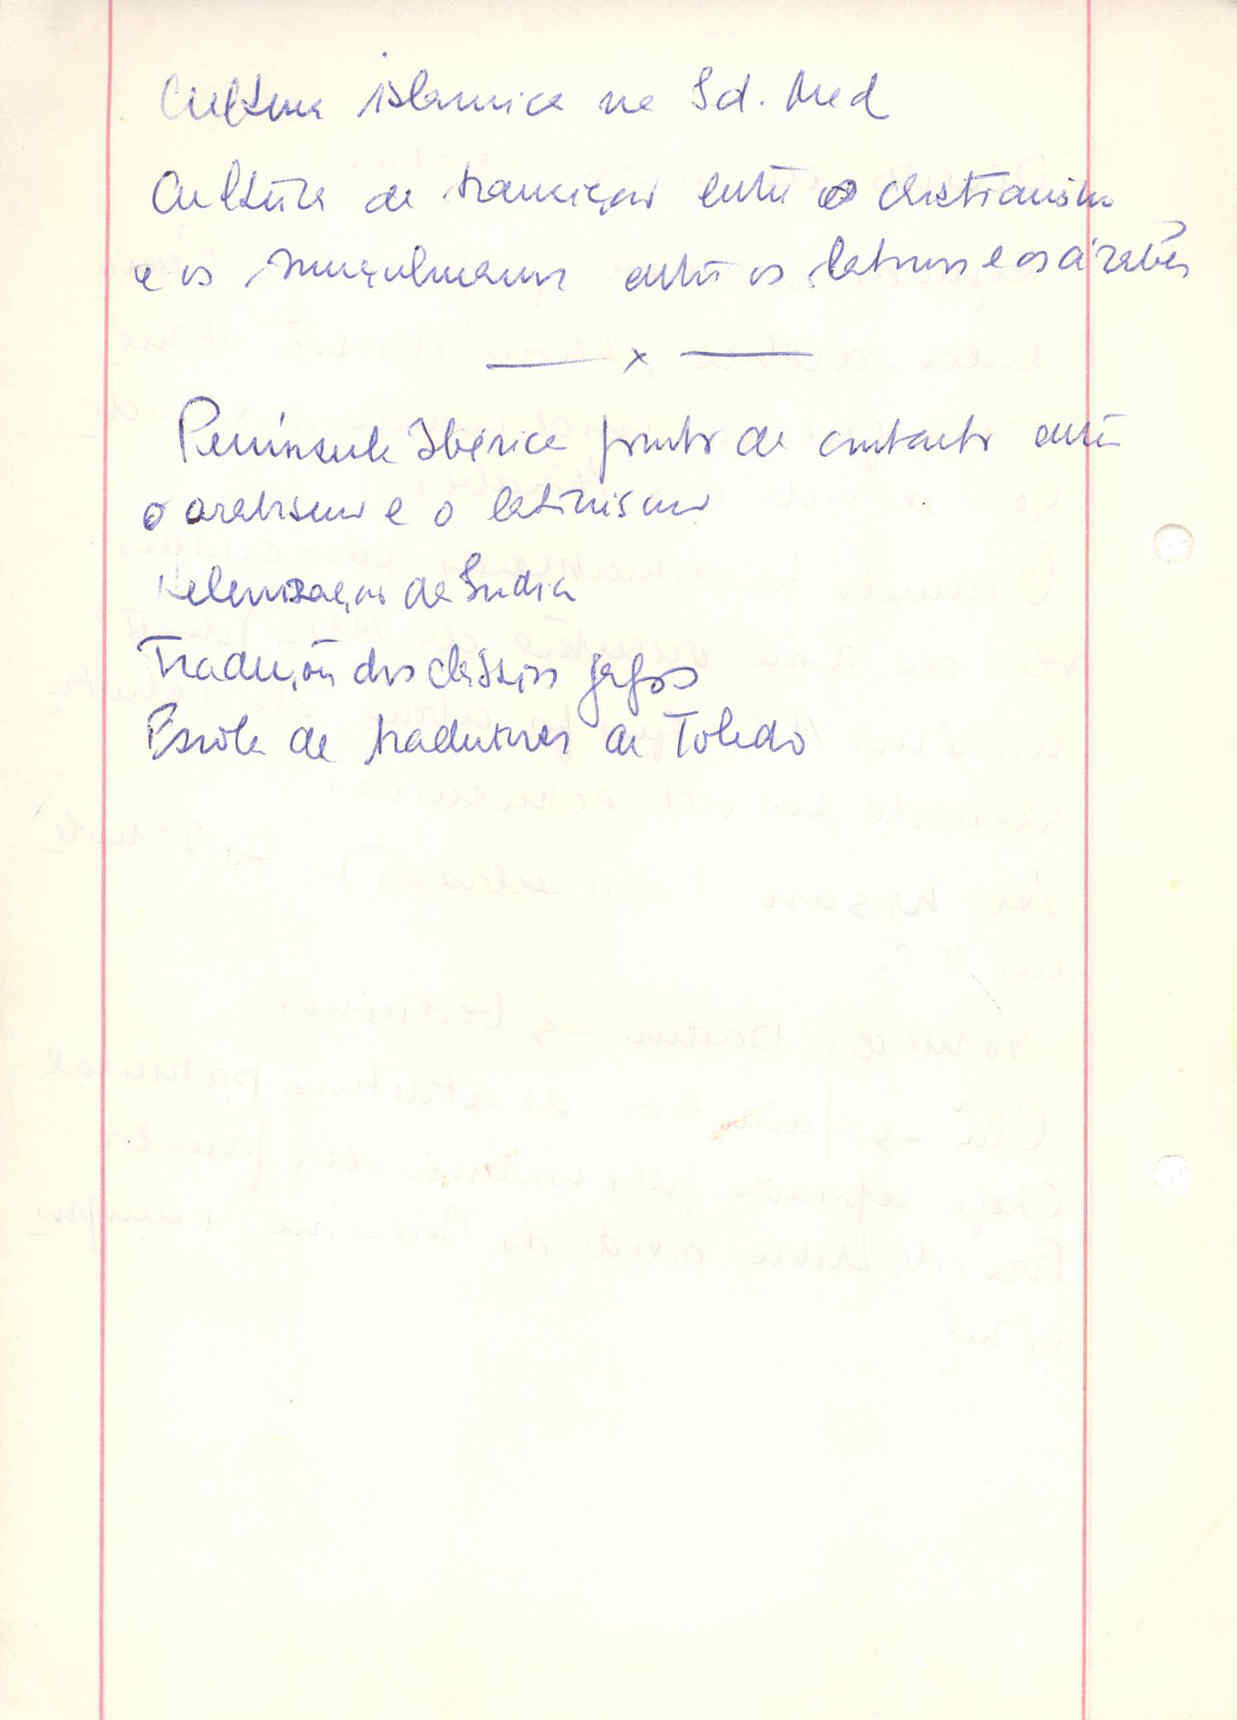 Cultura islamica na Id. Med
Cultura de transição entre o cristianismo
e os muçulmanos entre os latinos e os árabes
x
Peninsula Ibérica ponto de contacto entre
o arabismo e o latinismo
Helenização da India
Tradução dos clássicos gregos
Escola de tradutores de Toledo